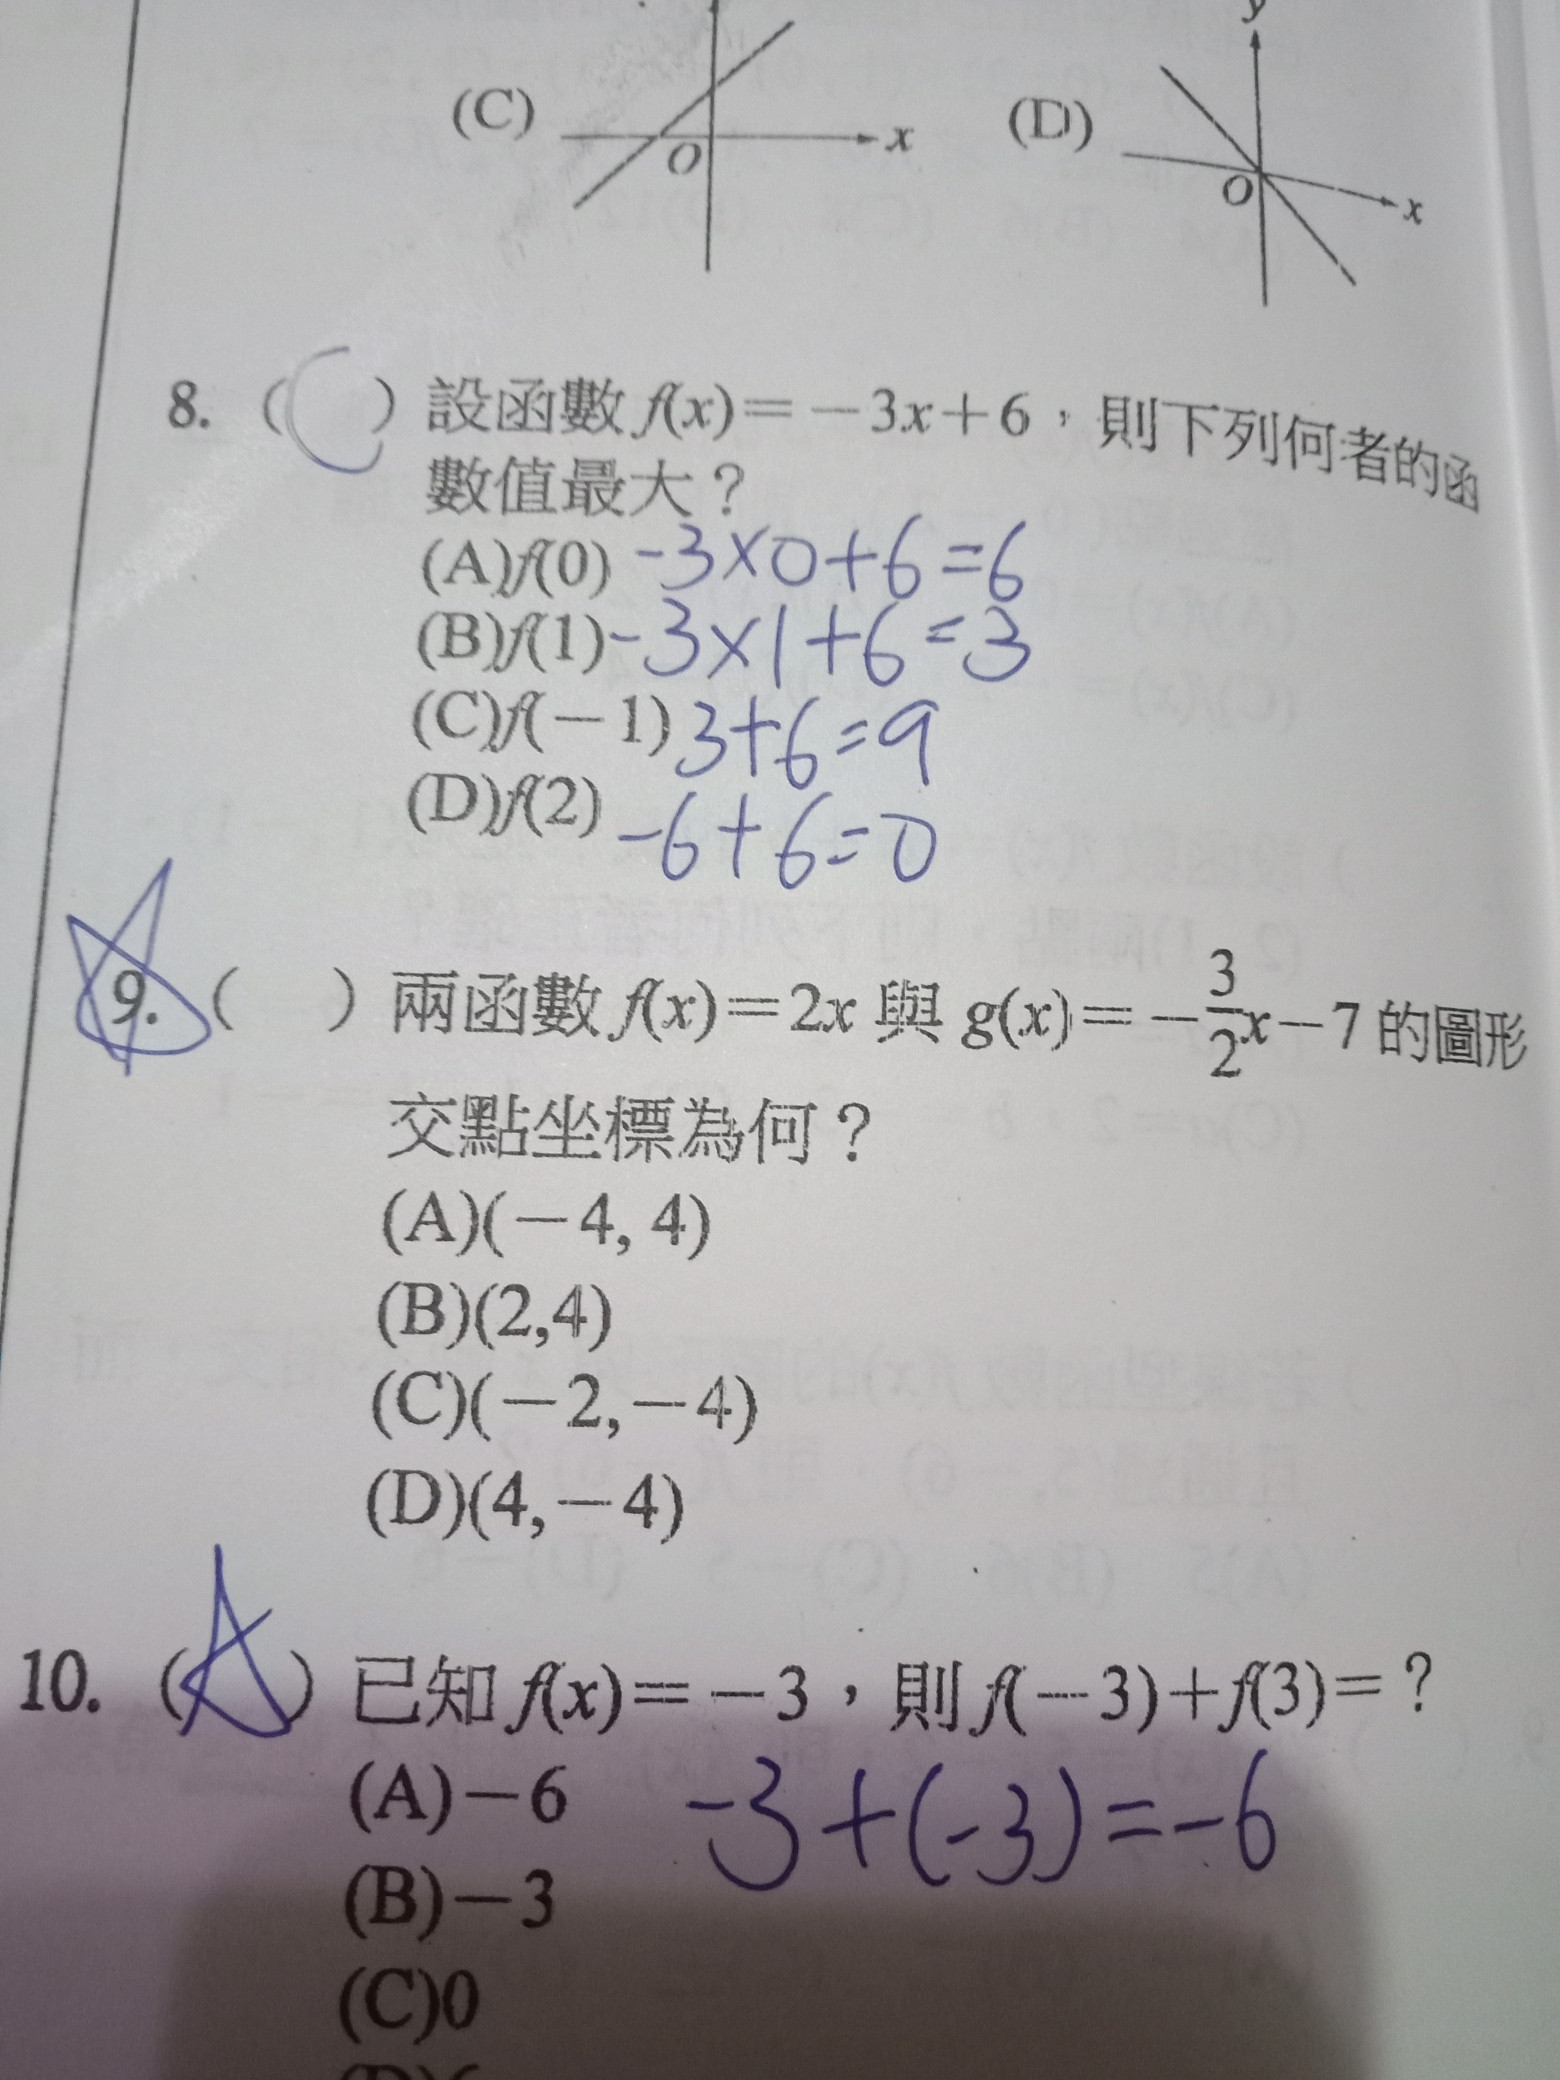 y
(C)
O
x
(D)
O
x
8. (C) 設函數 f(x)=-3x+6,則下列何者的函
數值最大?
(A)f(0) -3×0+6=6
(B)f(1) -3×1+6=3
(C)f(-1) 3+6=9
(D)f(2) -6+6=0
9. ( ) 兩函數 f(x)=2x 與 g(x)=-3/2x-7 的圖形
交點坐標為何?
(A)(-4, 4)
(B)(2,4)
(C)(-2,-4)
(D)(4,-4)
10. (A) 已知 f(x)=-3,則 f(-3)+f(3)=?
(A)-6 -3+(-3)=-6
(B)-3
(C)0